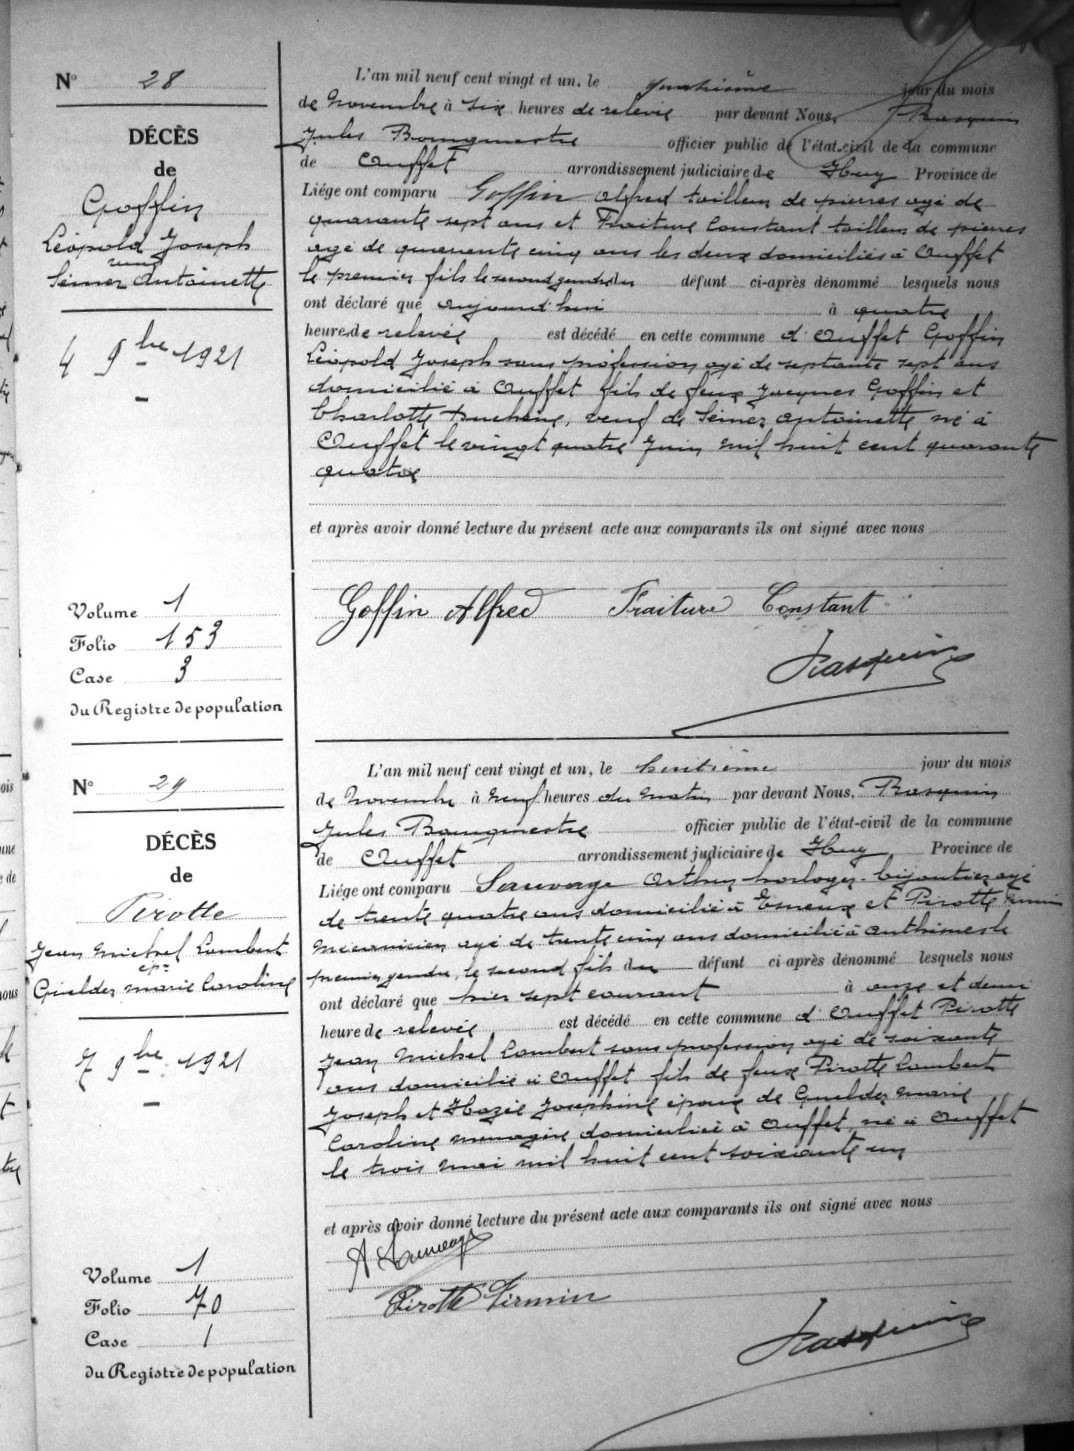 N° 28
DÉCÈS
de
Goffin
Léopold Joseph
veuf
Seinez Antoinette
4 9bre 1921
Volume 1
Folio 153
Case 3
du Registre de population
L'an mil neuf cent vingt et un, le quatrième jour du mois
de Novembre à six heures de relevée par devant Nous, Rasquin
Jules Bourgmestre officier public de l'état-civil de la commune
de Ouffet arrondissement judiciaire de Huy Province de
Liége ont comparu Goffin Alfred tailleur de pierres agé de
quarante sept ans et Fraiture Constant tailleur de pierres
agé de quarante cinq ans les deux domiciliés à Ouffet
le premier fils le second gendre du défunt ci-après dénommé lesquels nous
ont déclaré que aujourd'hui à quatre
heures de relevée est décédé en cette commune d'Ouffet Goffin
Léopold Joseph sans profession agé de septante sept ans
domicilié à Ouffet fils de feux Jacques Goffin et
Charlotte Duchêne, veuf de Seinez Antoinette né à
Ouffet le vingt quatre Juin mil huit cent quarante
quatre
et après avoir donné lecture du présent acte aux comparants ils ont signé avec nous
Goffin Alfred Fraiture Constant
Rasquin
N° 29
DÉCÈS
de
Pirotte
Jean Michel Lambert
ép:
Guelder Marie Caroline
7 9bre 1921
Volume 1
Folio 70
Case 1
du Registre de population
L'an mil neuf cent vingt et un, le huitième jour du mois
de Novembre à neuf heures du matin par devant Nous, Rasquin
Jules Bourgmestre officier public de l'état-civil de la commune
de Ouffet arrondissement judiciaire de Huy Province de
Liége ont comparu Sauvage Arthur horloger-bijoutier agé
de trente quatre ans domicilié à Esneux et Pirotte Firmin
mécanicien agé de trente cinq ans domicilié à Anthisnes le
premier gendre, le second fils du défunt ci après dénommé lesquels nous
ont déclaré que hier sept courant à onze et demi
heure de relevée est décédé en cette commune d'Ouffet Pirotte
Jean Michel Lambert sans profession agé de soixante
ans domicilié à Ouffet fils de feux Pirotte Lambert
Joseph et Hazée Joséphine époux de Guelder Marie
Caroline ménagère domiciliée à Ouffet, né à Ouffet
le trois mai mil huit cent soixante un
et après avoir donné lecture du présent acte aux comparants ils ont signé avec nous
A Sauvage
Pirotte Firmin
Rasquin